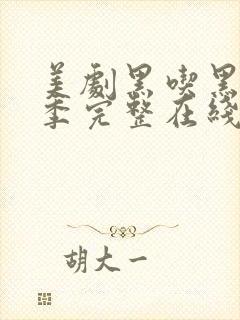 美劇黑喫黑
季完整在綫
胡大一